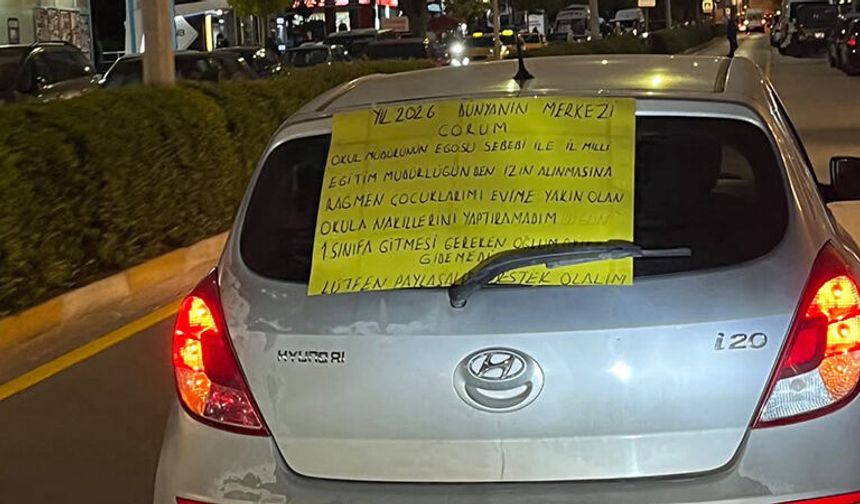 YIL 2026 DUNYANIN MERKEZİ
ÇORUM
OKUL MÜDÜRÜNÜN EGOSU SEBEBİ İLE İL MİLLİ
EĞİTİM MÜDÜRLÜĞÜNDEN İZİN ALINMASINA
RAĞMEN ÇOCUKLARIMI EVİME YAKIN OLAN
OKULA NAKİLLERİNİ YAPTIRAMADIM
1.SINIFA GİTMESİ GEREKEN
LÜTFEN DESTEK OLALIM
HYUNDAI
i20